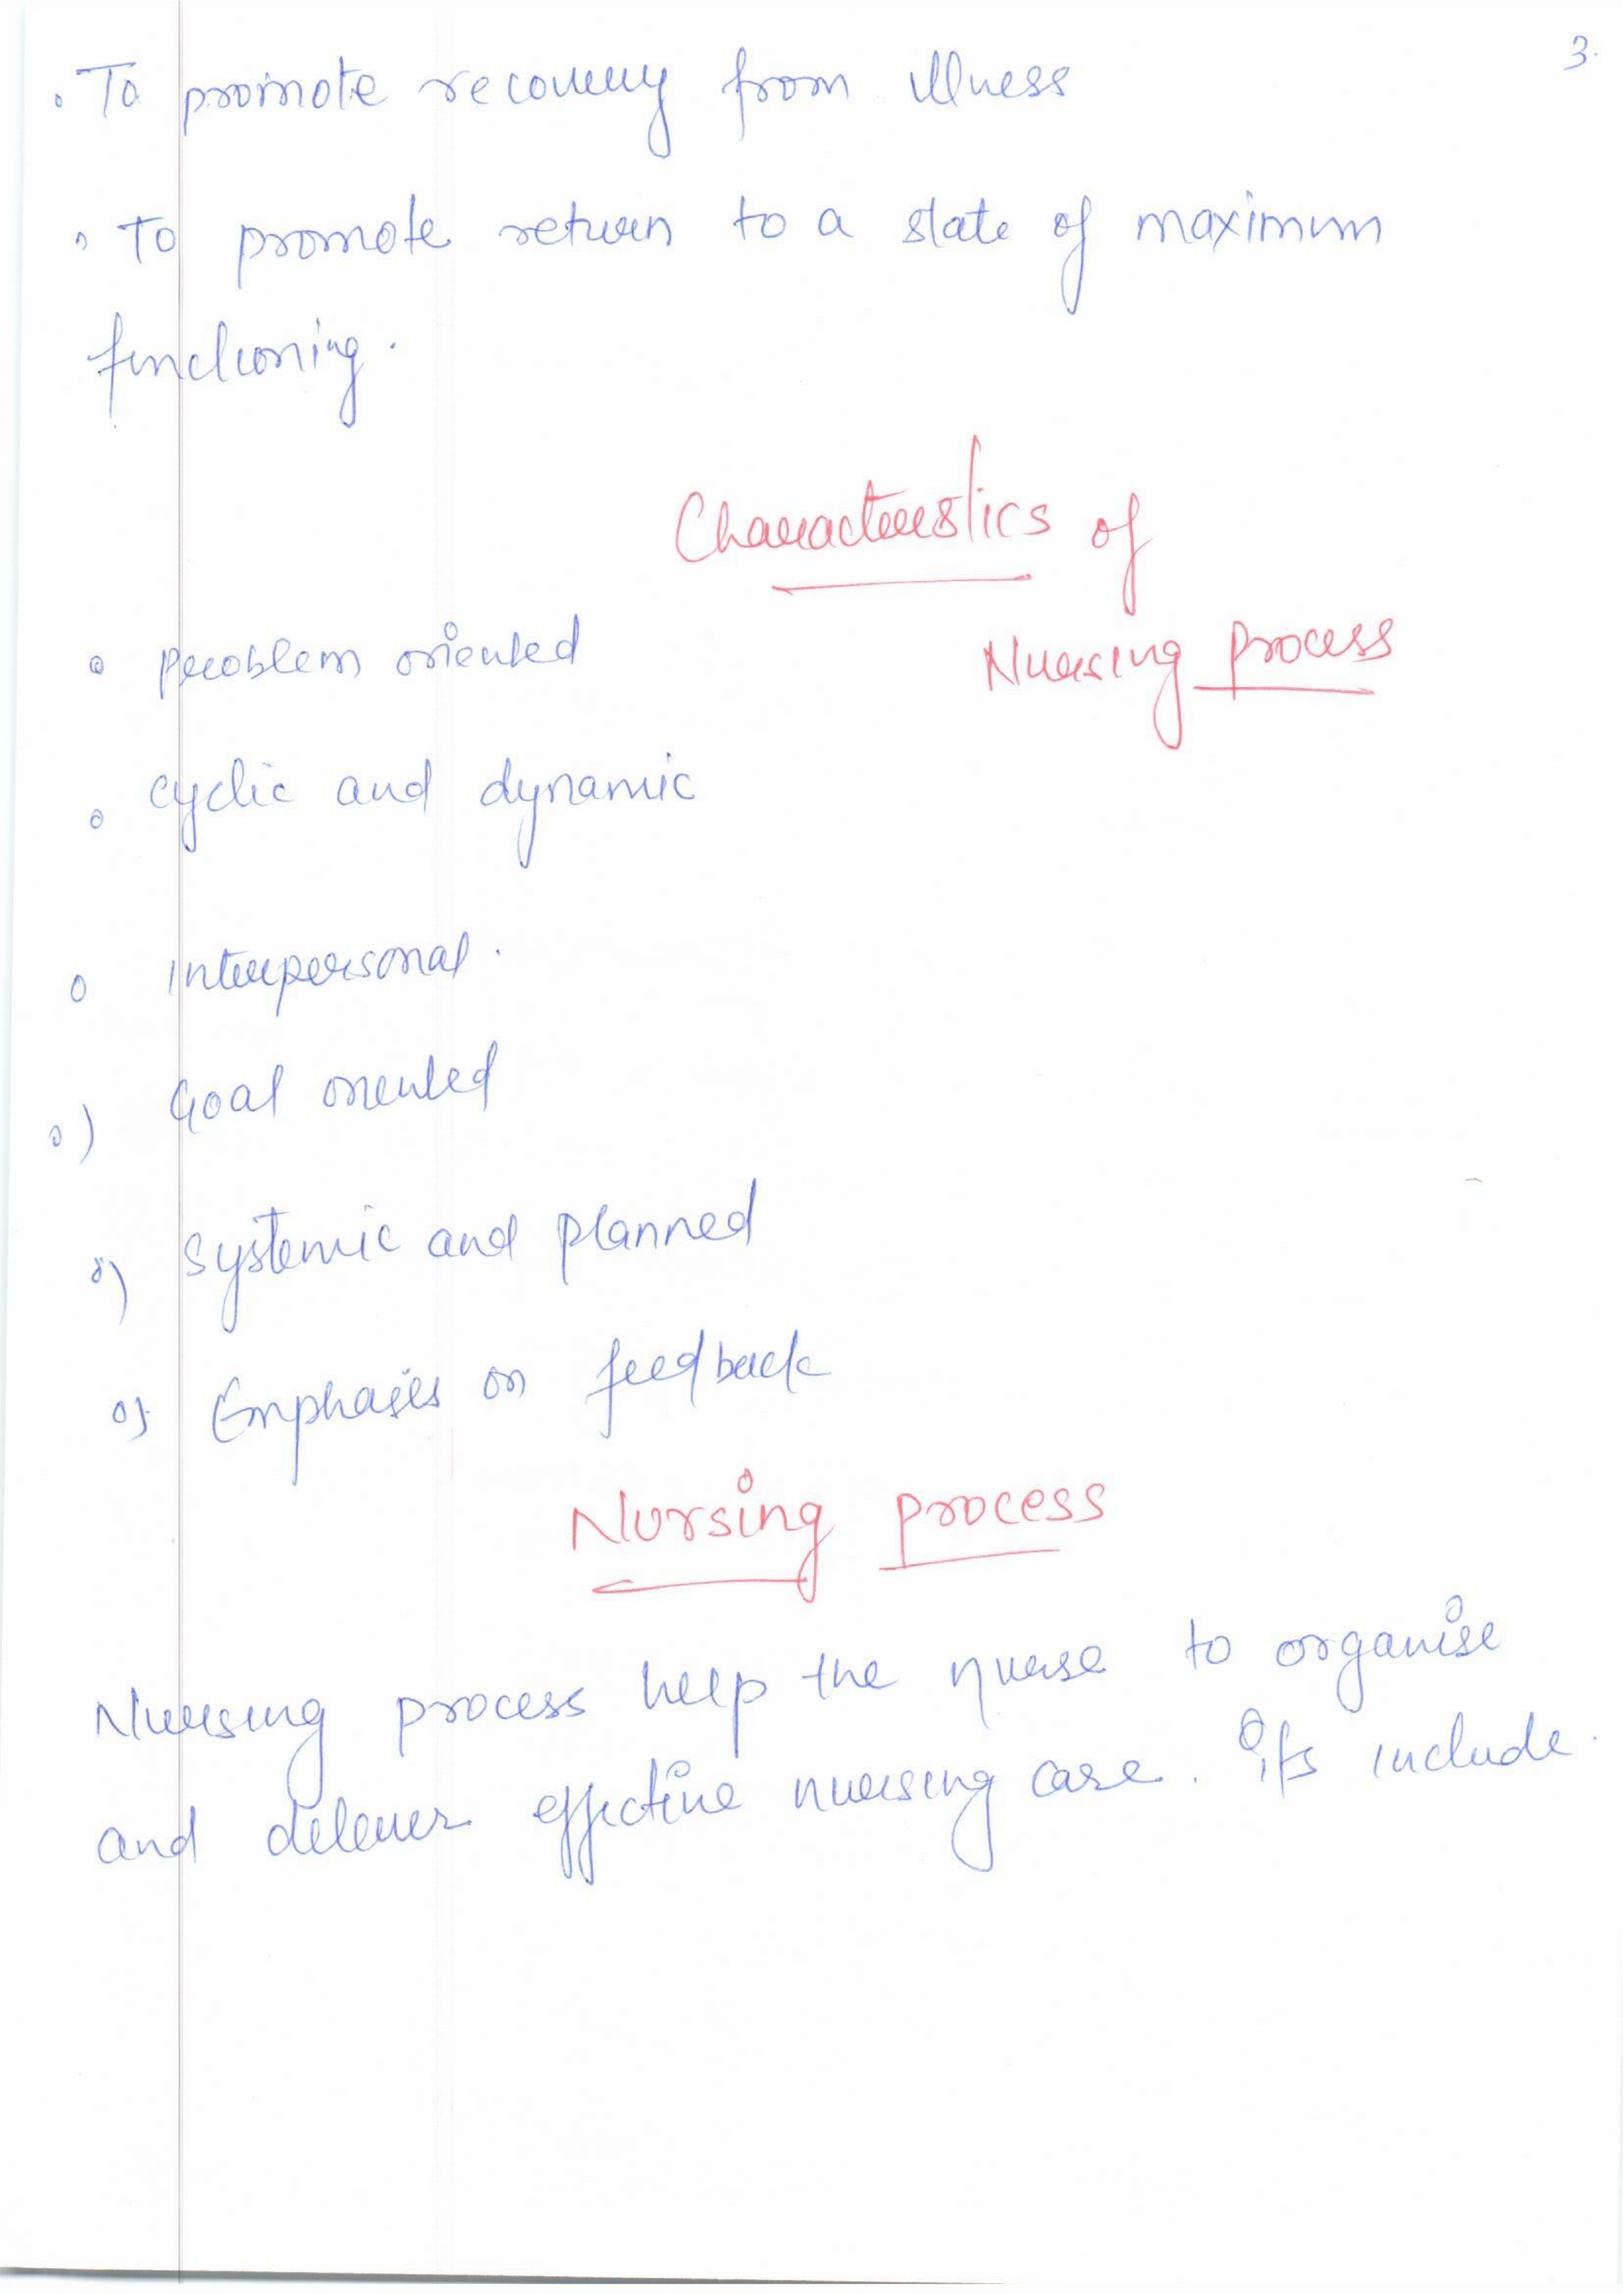 3.
. To promote recovery from illness
. To promote return to a state of maximum
functioning.
Characteristics of
Nursing process
o Problem oriented
o cyclic and dynamic
o Interpersonal.
o) Goal oriented
o) systemic and planned
o) Emphasis on feedback
Nursing process
Nursing process help the nurse to organise
and deliver effective nursing care. its include.